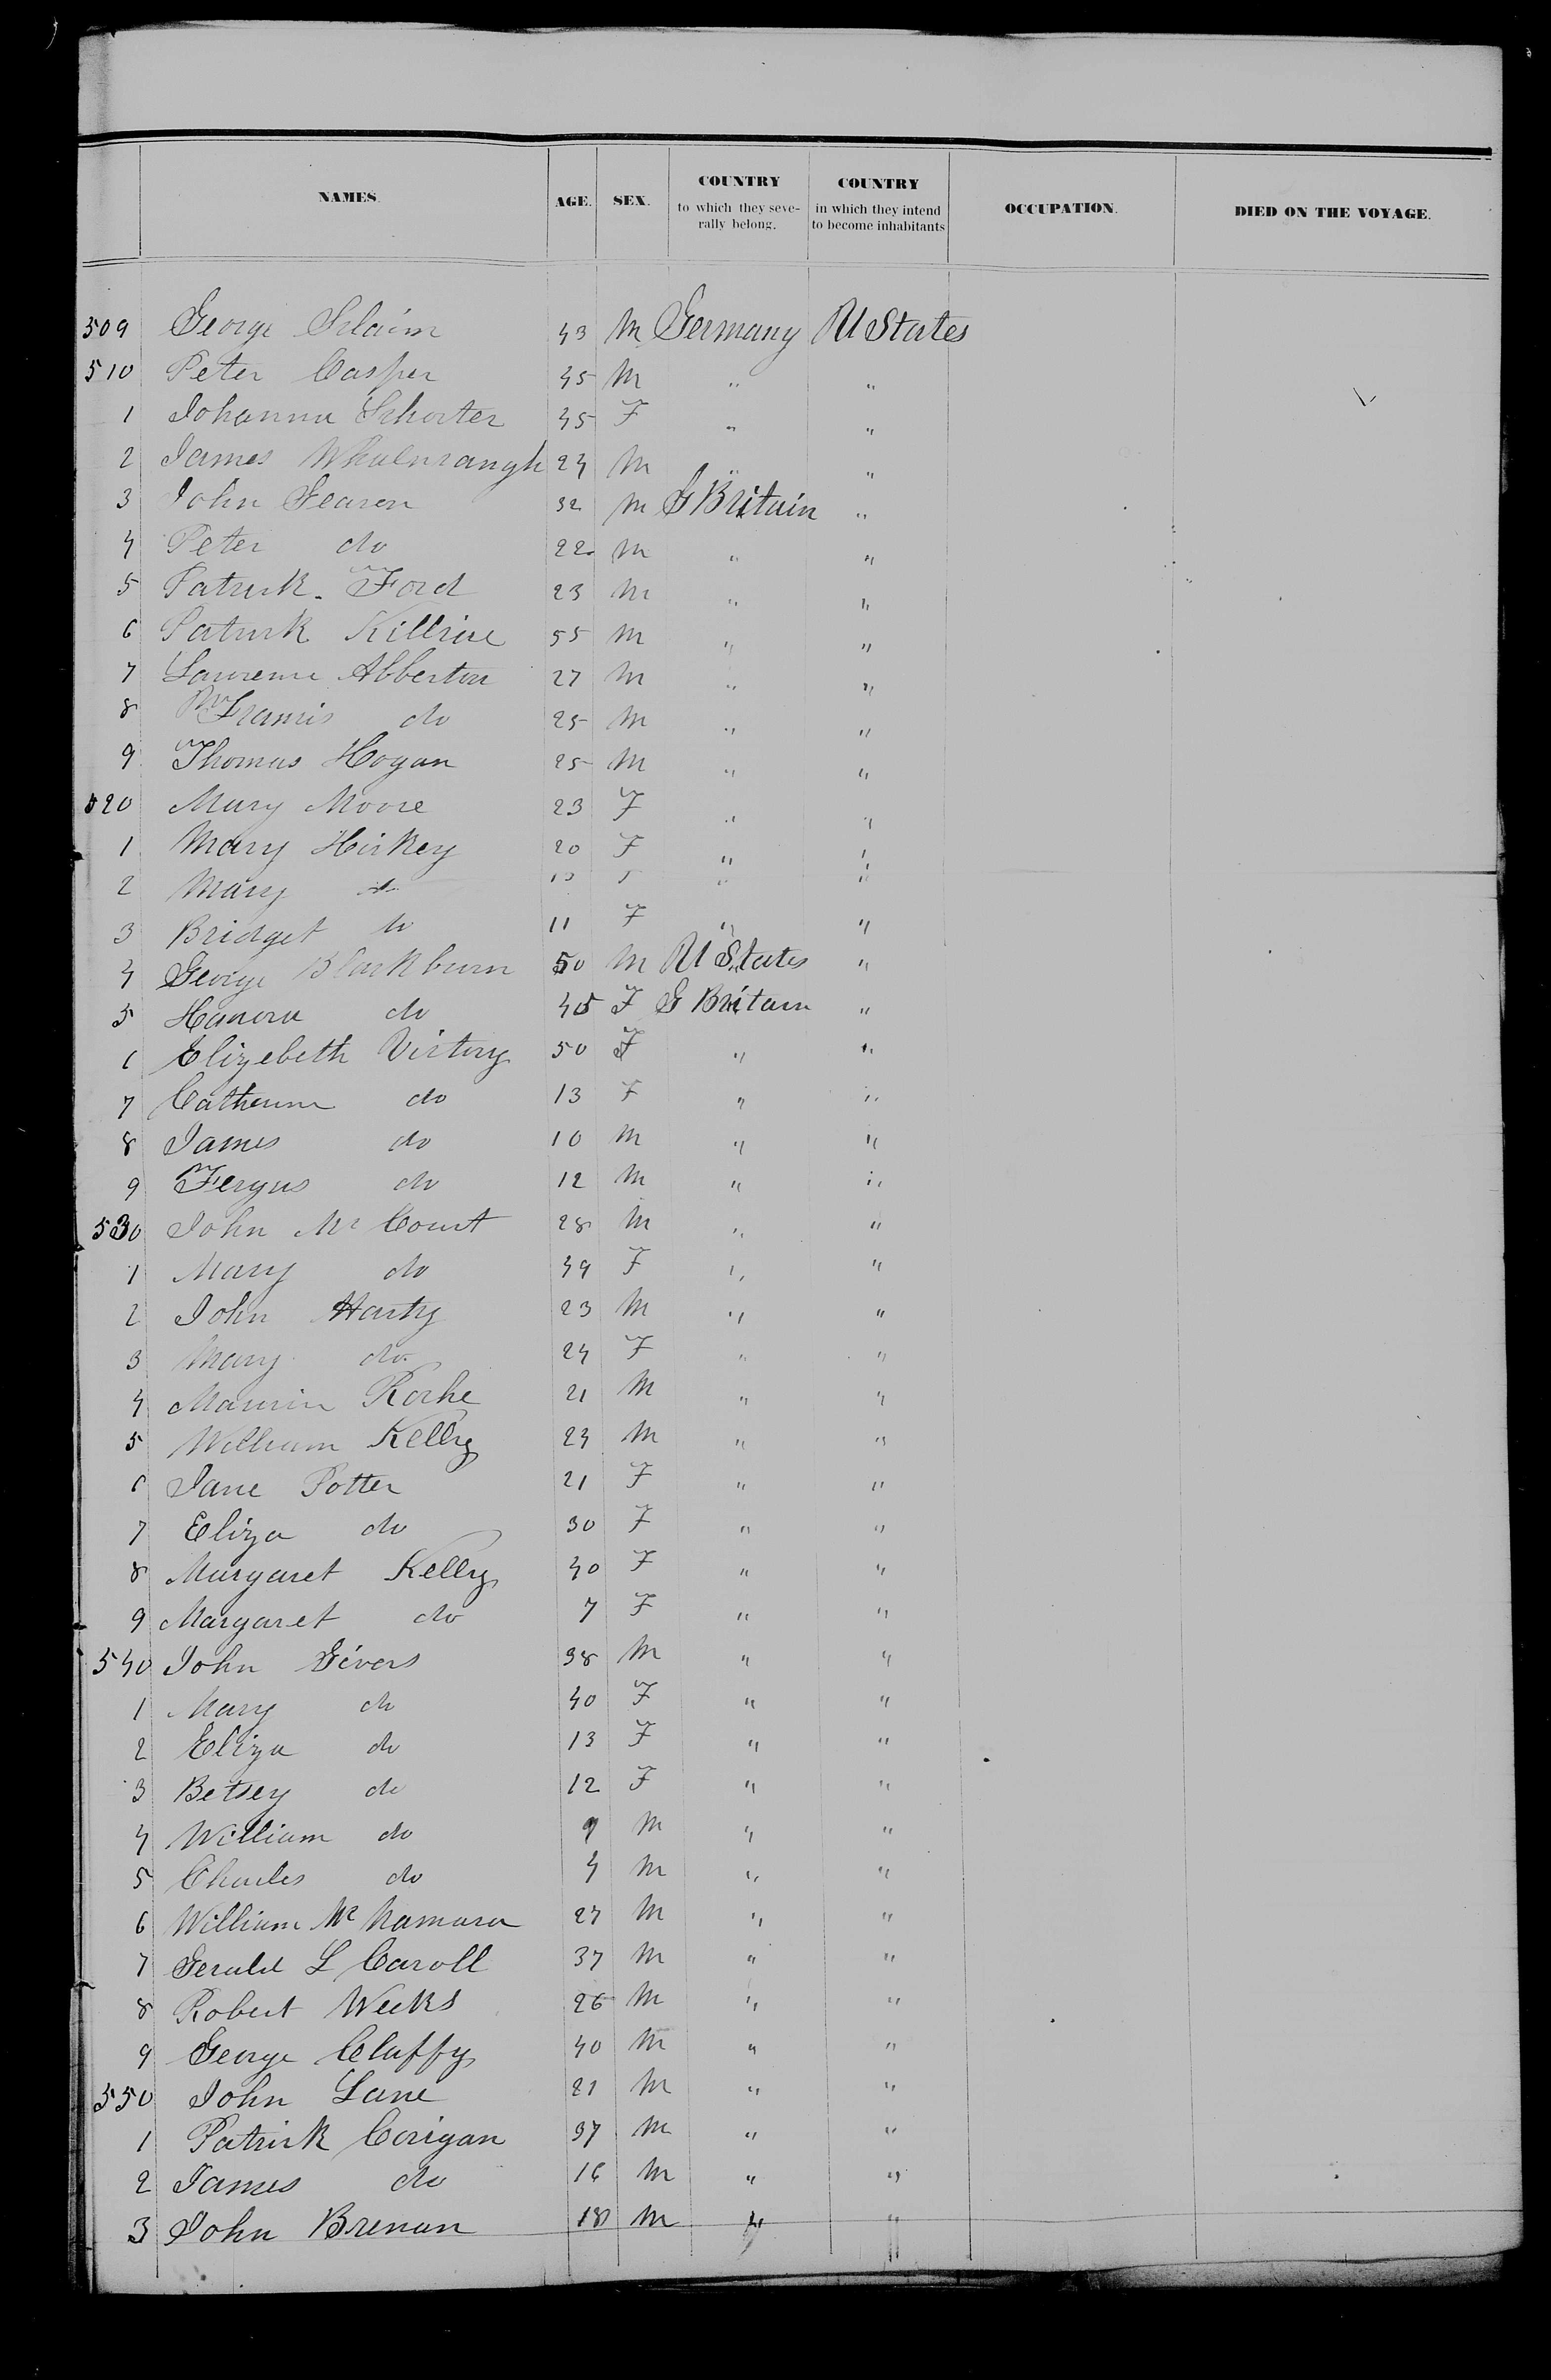 NAMES. AGE. SEX. COUNTRY to which they severally belong. COUNTRY in which they intend to become inhabitants OCCUPATION. DIED ON THE VOYAGE.
509 George 43 M Germany U States
510 Peter Casper 45 M " "
1 Johanna Schorter 45 F " "
2 James 24 M " "
3 John Gearen 32 M G Britain "
4 Peter do 22 M " "
5 Patrick Ford 23 M " "
6 Patrick Killrine 55 M " "
7 Lawrence Abberton 27 M " "
8 Francis do 25 M " "
9 Thomas Hogan 25 M " "
520 Mary Moore 23 F " "
1 Mary Hickey 20 F " "
2 Mary do " "
3 Bridget do 11 F " "
4 George Blackburn 50 M U States "
5 Hanora do 45 F G Britain "
6 Elizebeth Victory 50 F " "
7 Catherine do 13 F " "
8 James do 10 M " "
9 Fergus do 12 M " "
530 John Mc Court 28 M " "
1 Mary do 49 F " "
2 John Harty 23 M " "
3 Mary do 24 F " "
4 Maurice Roche 21 M " "
5 William Kelly 24 M " "
6 Jane Potter 21 F " "
7 Eliza do 30 F " "
8 Margaret Kelly 40 F " "
9 Margaret do 7 F " "
540 John Givers 38 M " "
1 Mary do 40 F " "
2 Eliza do 13 F " "
3 Betsey do 12 F " "
4 William do 9 M " "
5 Charles do 4 M " "
6 William Mc Namara 27 M " "
7 Gerald L Caroll 37 M " "
8 Robert Weeks 26 M " "
9 George Claffy 40 M " "
550 John Lane 21 M " "
1 Patrick Corigan 37 M " "
2 James do 16 M " "
3 John Brenan 18 M " "